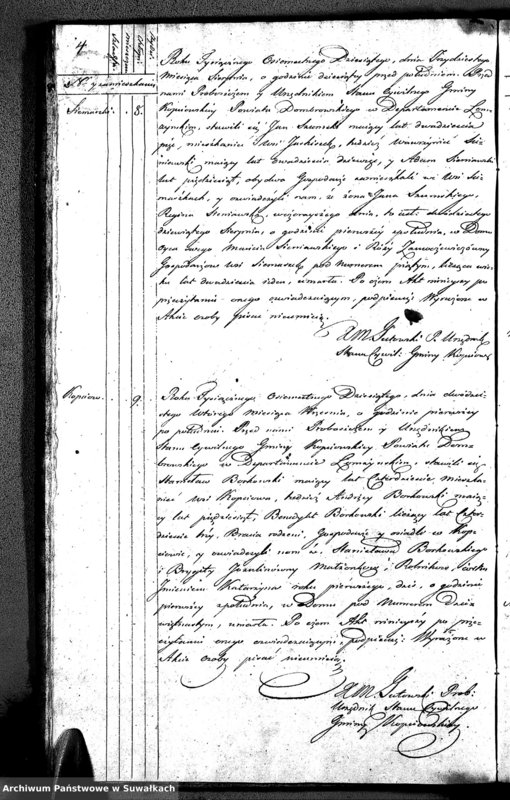 4
Siemaszki 8.
Roku Tysiącznego Osiemsetnego Dziesiątego, dnia Trzydziestego
Miesiąca Sierpnia, o godzinie dziesiątey przed południem. Przed
nami Proboszczem y Urzędnikiem Stanu Cywilnego Gminy
Kopciowskiey Powiatu Dombrowskiego w Departamencie Łom-
żynskim, stawili się Jan maiący lat dwadziescia
mieszkaniec wsi tudzież Wawrzyniec
maiący lat dwadziescia dziewięć, y Adam Sieniawski
lat pięćdziesiąt, obydwa Gospodarze zamieszkali we wsi Sie-
maszkach, y oswiadczyli nam, iż żona Jana
Regina Sieniawska, wczorayszego dnia, to iest: dwudziestego
dziewiątego Sierpnia, o godzinie pierwszey z południa, w Domu
Oyca swego Marcina Sieniawskiego i Róży
Gospodarzow wsi Siemaszek, pod Numerem piątym, licząca wie-
ku lat dwadziescia siedm, umarła. Po czem Akt ninieyszy po
przeczytaniu onego oswiadczaiącym, podpisuię: Wyrażone w
Akcie osoby pisać nieumieią.
P. Urzędnik
Stanu Cywil: Gminy Kopciow:
Kopciow. 9.
Roku Tysiącznego Osiemsetnego Dziesiątego, dnia dwudzie-
stego Wtorego Miesiąca Września, o godzinie pierwszey
po południu. Przed nami Proboszczem y Urzędnikiem
Stanu Cywilnego Gminy Kopciowskiey Powiatu Dom-
browskiego w Departamencie Łomżynskim, stawili się
Stanisław Borkowski maiący lat Czterdziescie Mieszka-
niec wsi Kopciowa, tudzież Andrzey Borkowski maią-
cy lat pięćdziesiąt, Benedykt Borkowski liczący lat Czter-
dziescie trzy, Bracia rodzeni, Gospodarze y osiadli w Kop-
ciowie, y oswiadczyli nam iż Stanisława Borkowskiego
i Brygity Małżonków, i Rolników, córka
Imieniem Katarzyna roku pierwszego, dziś, o godzinie
pierwszey z południa, w Domu pod Numerem Dzie-
więtnastym, umarła. Po czem Akt ninieyszy po prze-
czytaniu onego oswiadczaiącym, podpisuię: Wyrażone w
Akcie osoby pisać nieumieią.
Prob:
Urzędnik Stanu Cywilnego
Gminy Kopciowskiey.
Archiwum Państwowe w Suwałkach